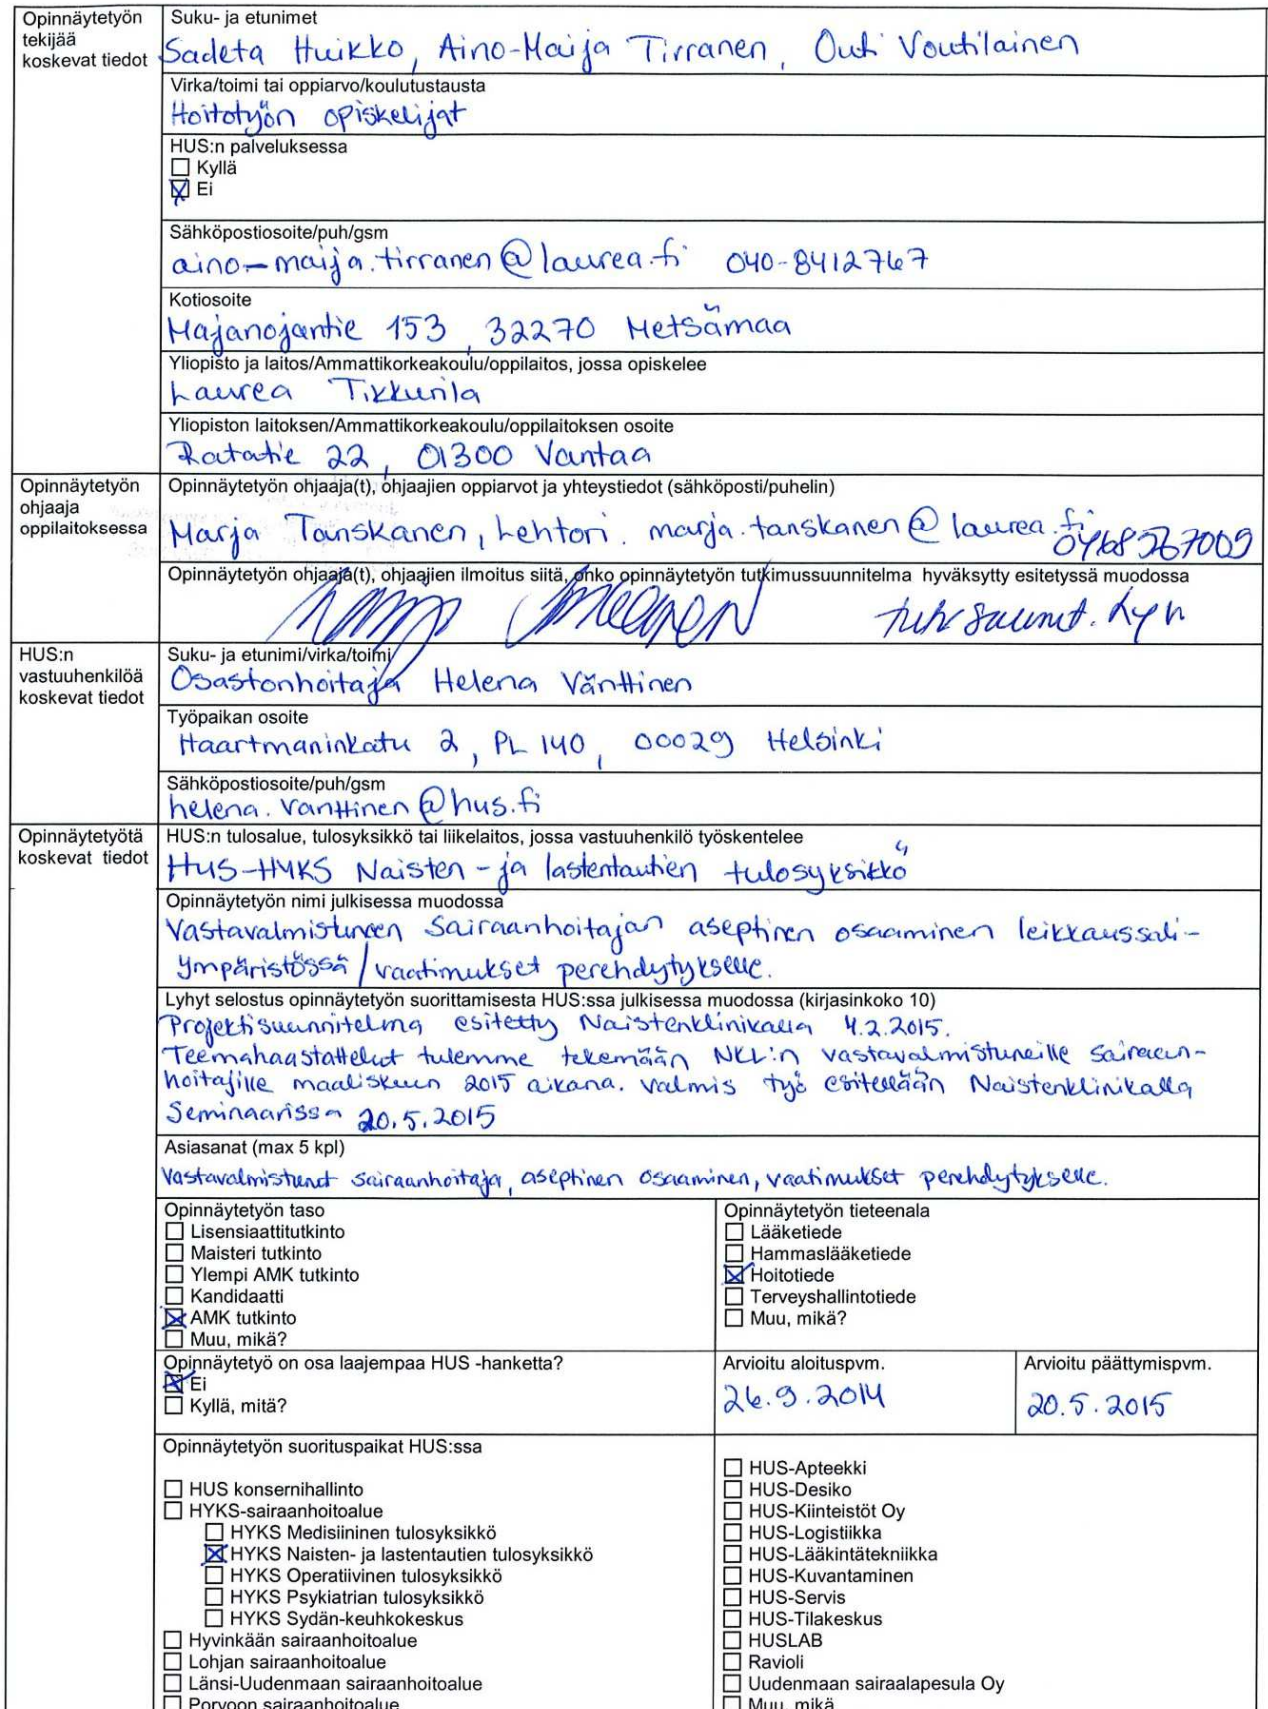 Opinnäytetyön
tekijää
koskevat tiedot
Suku- ja etunimet
Sadeta Huikko, Aino-Maija Tirranen, Outi Voutilainen
Virka/toimi tai oppiarvo/koulutustausta
Hoitotyön opiskelijat
HUS:n palveluksessa
Kyllä
Ei
Sähköpostiosoite/puh/gsm
aino-maija.tirranen@laurea.fi 040-8412767
Kotiosoite
Majanojantie 153, 32270 Metsämaa
Yliopisto ja laitos/Ammattikorkeakoulu/oppilaitos, jossa opiskelee
Laurea Tikkurila
Yliopiston laitoksen/Ammattikorkeakoulu/oppilaitoksen osoite
Ratatie 22, 01300 Vantaa
Opinnäytetyön
ohjaaja
oppilaitoksessa
Opinnäytetyön ohjaaja(t), ohjaajien oppiarvot ja yhteystiedot (sähköposti/puhelin)
Marja Tanskanen, Lehtori. marja.tanskanen@laurea.fi
Opinnäytetyön ohjaaja(t), ohjaajien ilmoitus siitä, onko opinnäytetyön tutkimussuunnitelma hyväksytty esitetyssä muodossa
HUS:n
vastuuhenkilöä
koskevat tiedot
Suku- ja etunimi/virka/toimi
Osastonhoitaja Helena Vänttinen
Työpaikan osoite
Haartmaninkatu 2, PL 140, 00029 Helsinki
Sähköpostiosoite/puh/gsm
helena.vanttinen@hus.fi
Opinnäytetyötä
koskevat tiedot
HUS:n tulosalue, tulosyksikkö tai liikelaitos, jossa vastuuhenkilö työskentelee
HUS-HYKS Naisten- ja lastentautien tulosyksikkö
Opinnäytetyön nimi julkisessa muodossa
Vastavalmistuneen sairaanhoitajan aseptinen osaaminen leikkaussali-
ympäristössä / vaatimukset perehdytykselle.
Lyhyt selostus opinnäytetyön suorittamisesta HUS:ssa julkisessa muodossa (kirjasinkoko 10)
Projektisuunnitelma esitetty Naistenklinikalla 4.2.2015.
Teemahaastattelut tulemme tekemään NKL:n vastavalmistuneille sairaan-
hoitajille maaliskuun 2015 aikana. Valmis työ esitellään Naistenklinikalla
Seminaarissa 20.5.2015
Asiasanat (max 5 kpl)
Vastavalmistunut sairaanhoitaja, aseptinen osaaminen, vaatimukset perehdytykselle.
Opinnäytetyön taso
Lisensiaattitutkinto
Maisteri tutkinto
Ylempi AMK tutkinto
Kandidaatti
AMK tutkinto
Muu, mikä?
Opinnäytetyön tieteenala
Lääketiede
Hammaslääketiede
Hoitotiede
Terveyshallintotiede
Muu, mikä?
Opinnäytetyö on osa laajempaa HUS -hanketta?
Ei
Kyllä, mitä?
Arvioitu aloituspvm.
26.9.2014
Arvioitu päättymispvm.
20.5.2015
Opinnäytetyön suorituspaikat HUS:ssa
HUS konsernihallinto
HYKS-sairaanhoitoalue
HYKS Medisiininen tulosyksikkö
HYKS Naisten- ja lastentautien tulosyksikkö
HYKS Operatiivinen tulosyksikkö
HYKS Psykiatrian tulosyksikkö
HYKS Sydän-keuhkokeskus
Hyvinkään sairaanhoitoalue
Lohjan sairaanhoitoalue
Länsi-Uudenmaan sairaanhoitoalue
Porvoon sairaanhoitoalue
HUS-Apteekki
HUS-Desiko
HUS-Kiinteistöt Oy
HUS-Logistiikka
HUS-Lääkintätekniikka
HUS-Kuvantaminen
HUS-Servis
HUS-Tilakeskus
HUSLAB
Ravioli
Uudenmaan sairaalapesula Oy
Muu, mikä